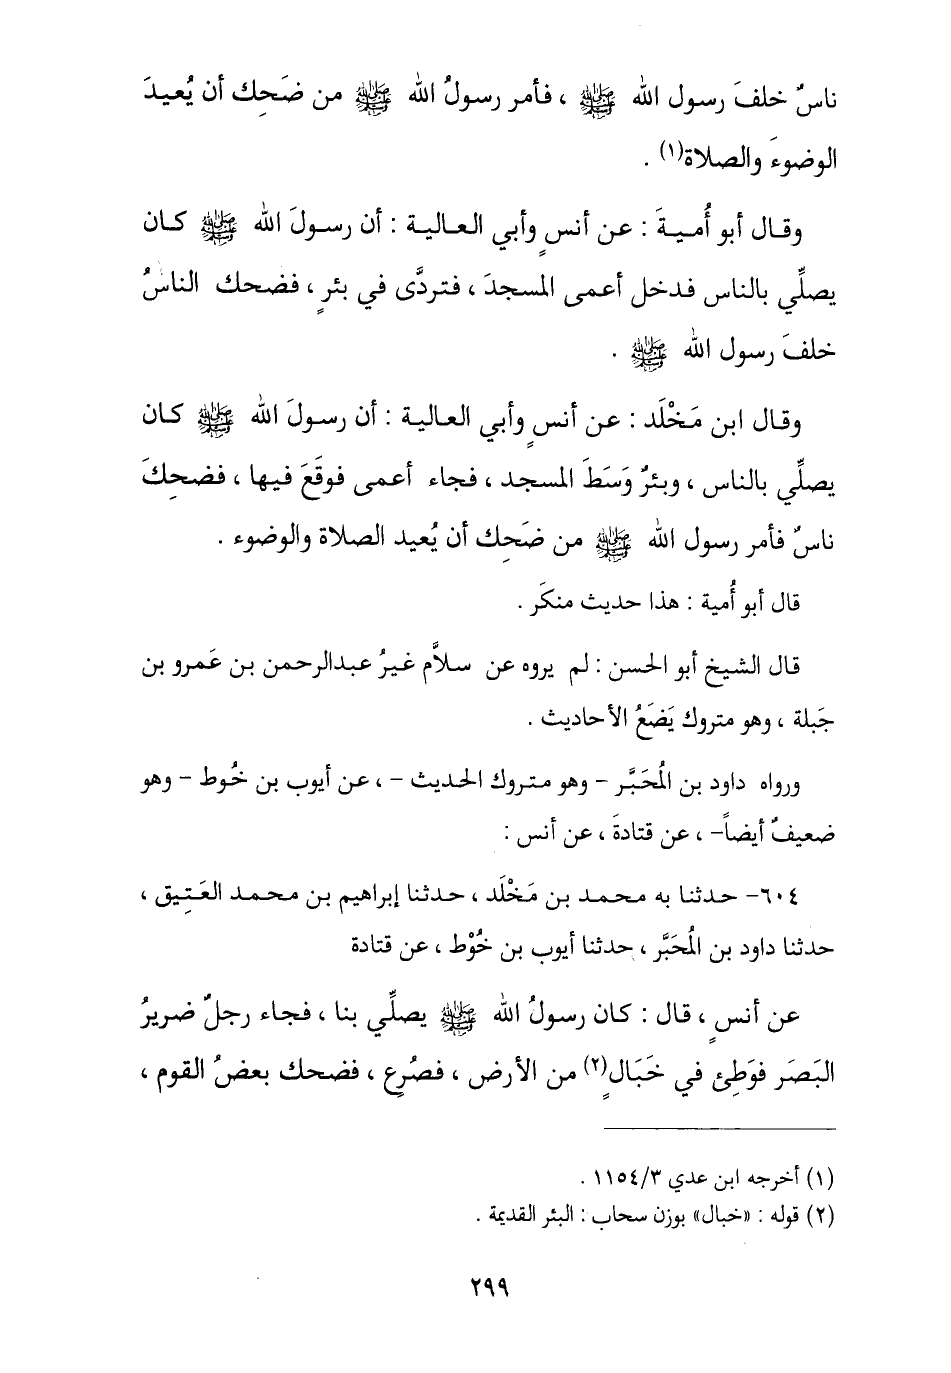 ناسٌ خلفَ رسول الله ﷺ ، فأمر رسولُ الله ﷺ من ضَحِك أن يُعيدَ
الوضوءَ والصلاة(١) .
وقال أبو أُميةَ : عن أنسٍ وأبي العالية : أن رسولَ الله ﷺ كان
يصلِّي بالناس فدخل أعمى المسجدَ ، فتردَّى في بئرٍ ، فضحك الناسُ
خلفَ رسول الله ﷺ .
وقال ابن مَخْلَد : عن أنسٍ وأبي العالية : أن رسولَ الله ﷺ كان
يصلِّي بالناس ، وبئرٌ وَسَطَ المسجد ، فجاء أعمى فوقَعَ فيها ، فضحِكَ
ناسٌ فأمر رسول الله ﷺ من ضَحِك أن يُعيد الصلاة والوضوء .
قال أبو أُمية : هذا حديث منكَر .
قال الشيخ أبو الحسن : لم يروه عن سلاَّم غيرُ عبدالرحمن بن عَمرو بن
جَبلة ، وهو متروك يَضَعُ الأحاديث .
ورواه داود بن المُحَبَّر – وهو متروك الحديث – ، عن أيوب بن خُوط – وهو
ضعيفٌ أيضاً– ، عن قتادةَ ، عن أنس :
٦٠٤– حدثنا به محمد بن مَخْلَد ، حدثنا إبراهيم بن محمد العَتِيق ،
حدثنا داود بن المُحَبَّر ، حدثنا أيوب بن خُوْط ، عن قتادة
عن أنسٍ ، قال : كان رسولُ الله ﷺ يصلِّي بنا ، فجاء رجلٌ ضريرُ
البَصَر فوَطِئ في خَبَالٍ(٢) من الأرض ، فصُرِع ، فضحك بعضُ القوم ،
(١) أخرجه ابن عدي ١١٥٤/٣ .
(٢) قوله : «خبال» بوزن سحاب : البئر القديمة .
٢٩٩